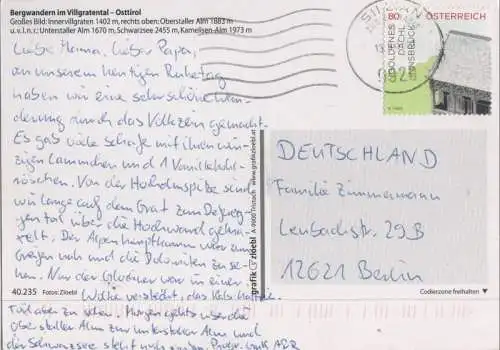 Bergwandern im Villgratental – Osttirol
Großes Bild: Innervillgraten 1402 m, rechts oben: Oberstaller Alm 1883 m
u.v.l.n.r.: Unterstaller Alm 1670 m, Schwarzsee 2455 m, Kamelisen-Alm 1973 m
Liebe Mama, lieber Papa,
an unserem heutigen Ruhetag
haben wir eine sehr schöne Wan-
derung durch das gemacht.
Es gab viele Schafe mit ihren win-
zigen Lämmchen und 1
röschen. Von der sind
wir lange auf dem Grat zum Defereg-
gental über die Hochwand
Der Alpenhauptkamm war zum
Greifen nah und die Dolomiten zu se-
hen. Nur der Glockner war in einer
Wolke versteckt, das Kals
Tirol aber zu sehen. Morgen gehts über die
Oberstaller Alm zur Unterstaller Alm und
der Schwarzsee steht auch
SILLIAN
9920
80
ÖSTERREICH
GOLDENES
DACHL
INNSBRUCK
DEUTSCHLAND
Familie Zimmermann
Lenbachstr. 29B
12621 Berlin
grafik zloebl A-9900 Tristach www.grafikzloebl.at
40.235 Fotos: Zloebl
Codierzone freihalten ▼